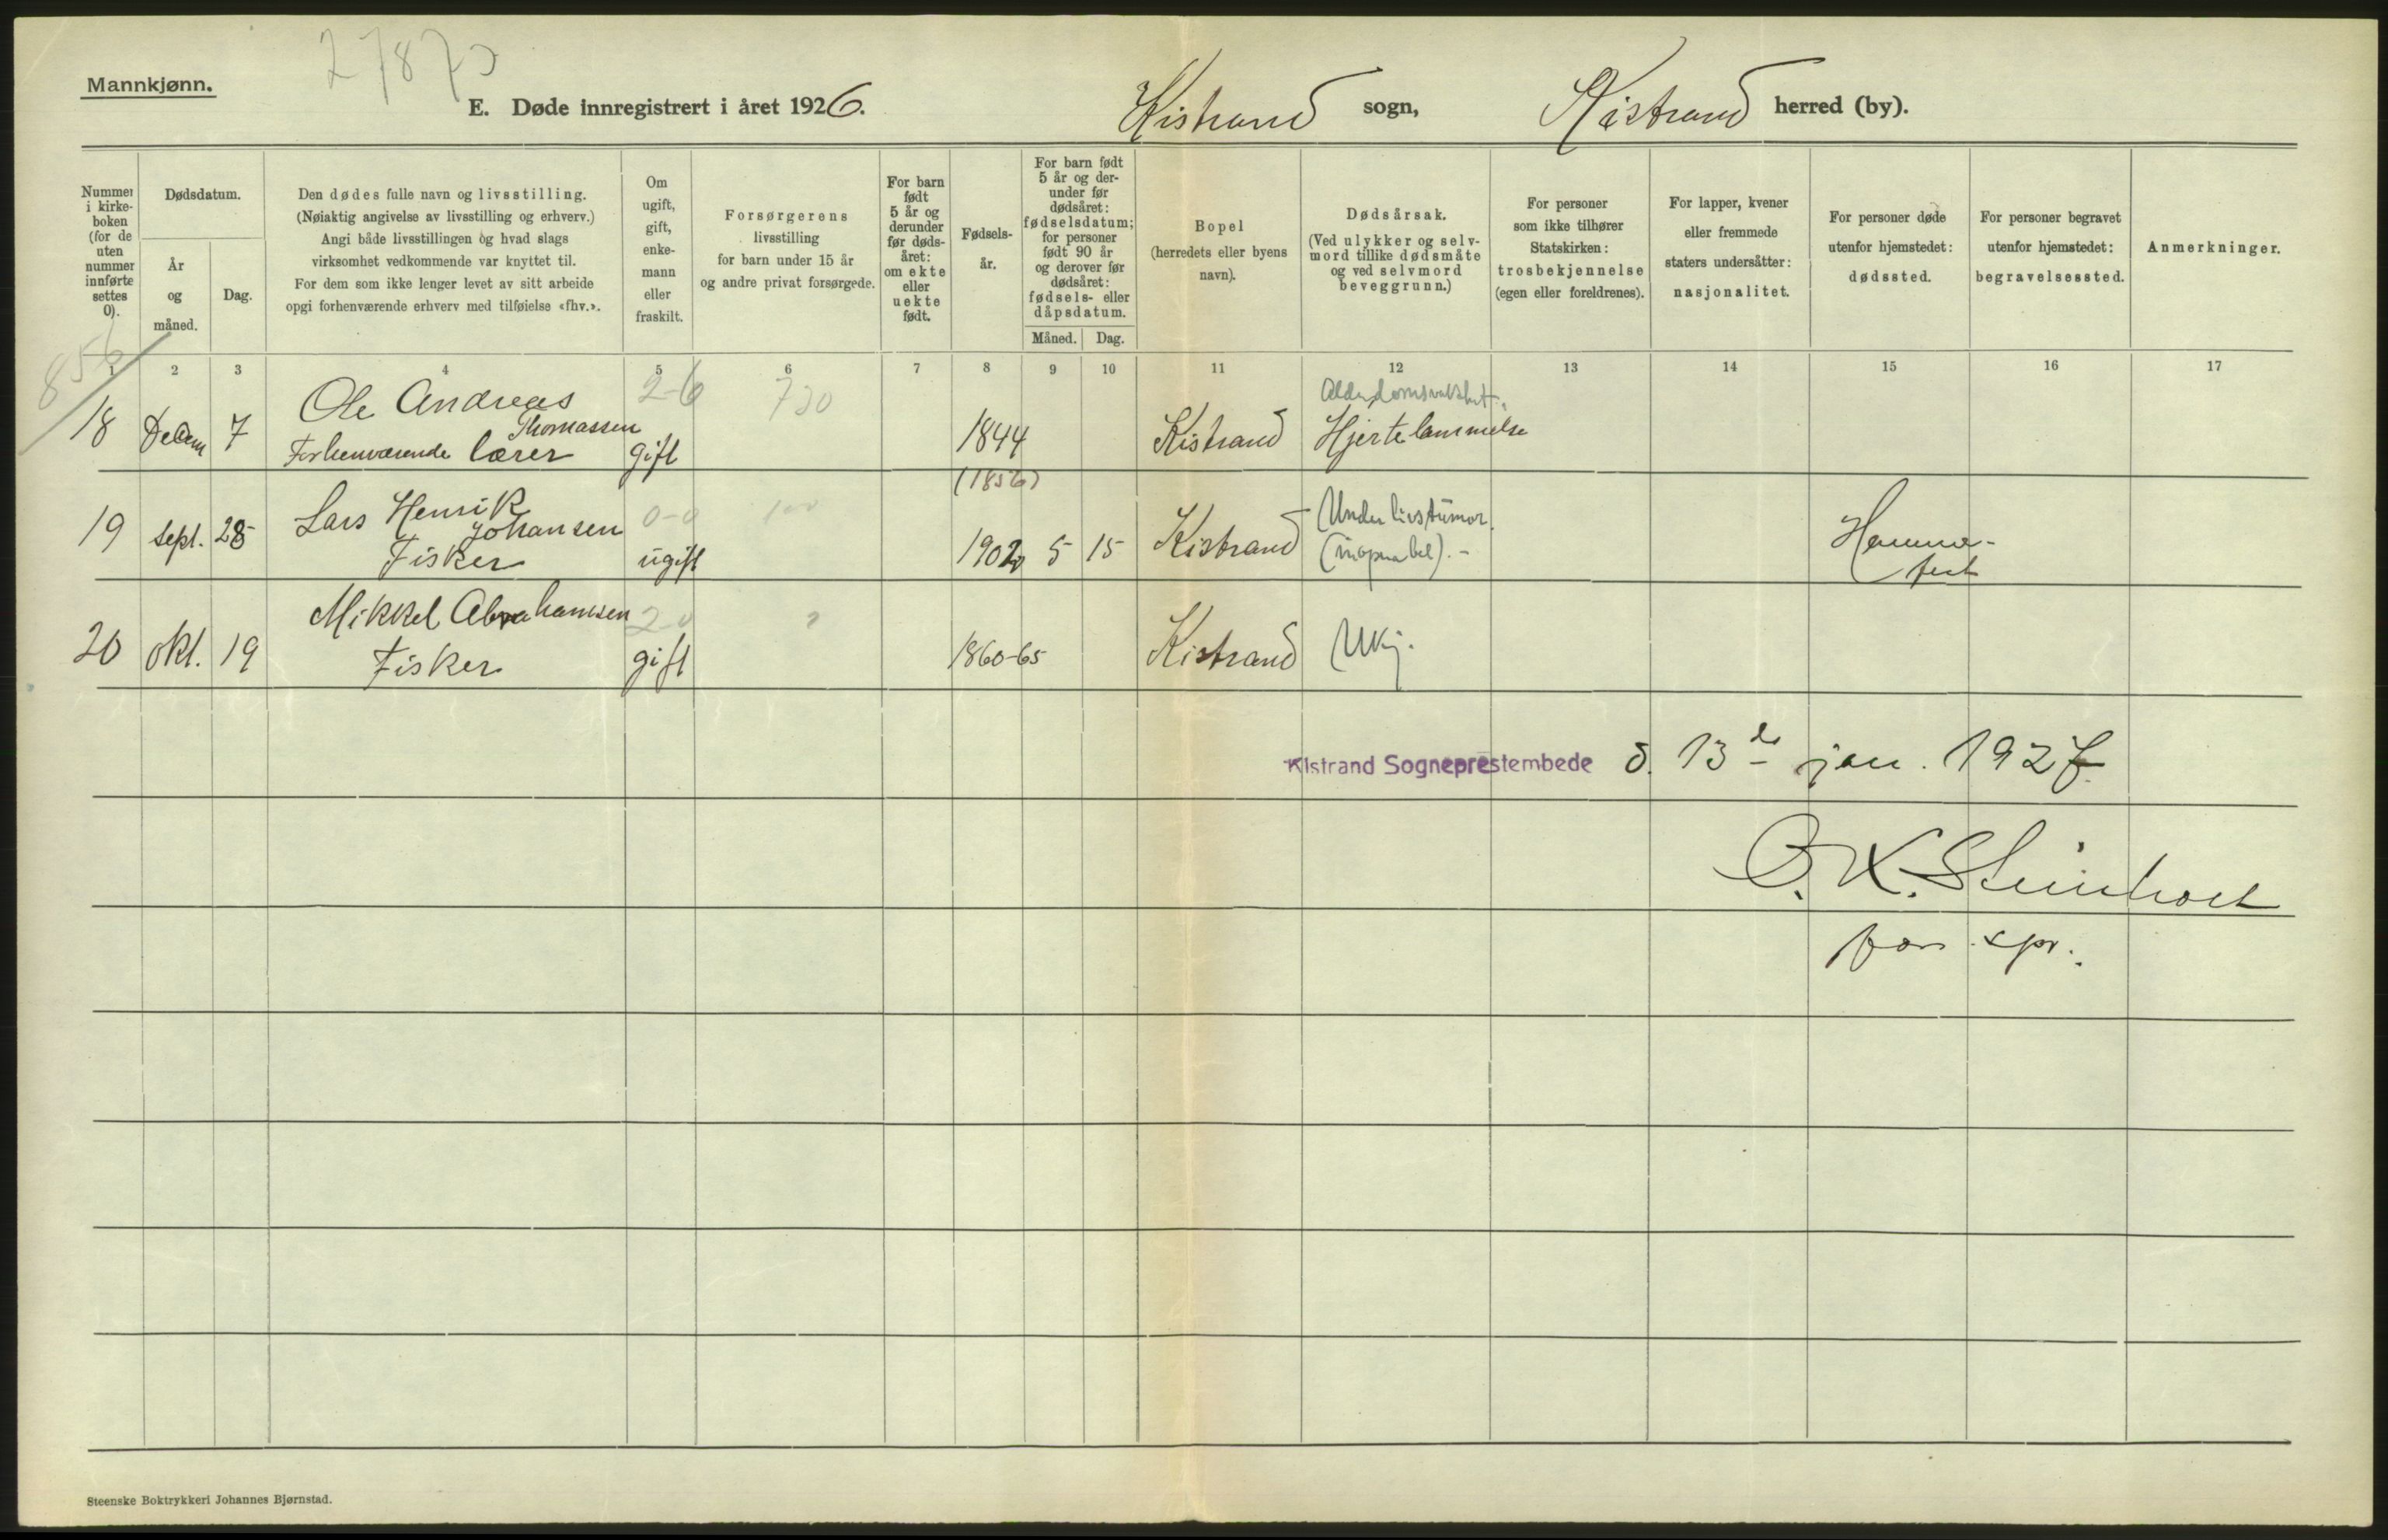 27873
Mannkjønn.
E. Døde innregistrert i året 1926.
Kistrand sogn,
Kistrand herred (by).
Nummer i kirkeboken (for de uten nummer innførte settes 0).
Dødsdatum.
År og måned.
Dag.
Den dødes fulle navn og livsstilling.
(Nøiaktig angivelse av livsstilling og erhverv.)
Angi både livsstillingen og hvad slags
virksomhet vedkommende var knyttet til.
For dem som ikke lenger levet av sitt arbeide
opgi forhenværende erhverv med tilføielse «fhv.».
Om ugift, gift, enkemann eller fraskilt.
Forsørgerens
livsstilling
for barn under 15 år
og andre privat forsørgede.
For barn født 5 år og derunder før dødsåret: om ekte eller uekte født.
Fødselsår.
For barn født 5 år og derunder før dødsåret: fødselsdatum; for personer født 90 år og derover før dødsåret: fødsels- eller dåpsdatum.
Måned.
Dag.
Bopel
(herredets eller byens
navn).
Dødsårsak.
(Ved ulykker og selvmord tillike dødsmåte og ved selvmord beveggrunn.)
For personer
som ikke tilhører
Statskirken:
trosbekjennelse
(egen eller foreldrenes).
For lapper, kvener
eller fremmede
staters undersåtter:
nasjonalitet.
For personer døde
utenfor hjemstedet:
dødssted.
For personer begravet
utenfor hjemstedet:
begravelsessted.
Anmerkninger.
856
1 2 3 4 5 6 7 8 9 10 11 12 13 14 15 16 17
2-6 730 Alderdomssvakhet.
18 Decem 7 Ole Andreas Thomassen 1844 Kistrand Hjertelammelse
Forhenværende lærer gift
(1856)
19 sept. 28 Lars Henrik Johansen 0-0 100 1902 5 15 Kistrand Underlivstumor Hammerfest
Fisker ugift (inoperabel). -
20 okt. 19 Mikkel Abrahamsen 2-0 ? 1860-65 Kistrand Ukj.
Fisker gift
Kistrand Sogneprestembede d. 13de jan. 1927.
O. K. Steinholt
fon. spr.
Steenske Boktrykkeri Johannes Bjørnstad.